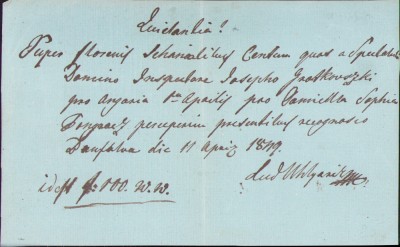 Quietantia!
Super florenis Schaeinalibus Centum quos a Spectabili
Domino Inspectore Josepho Grotkovszki
pro Angaria 1ma Aprilis pro Domicella Sophia
Pongracz percepisse praesentibus recognosco
die 11 Apriz 1849.
idest f: 100. W. W.
Lud